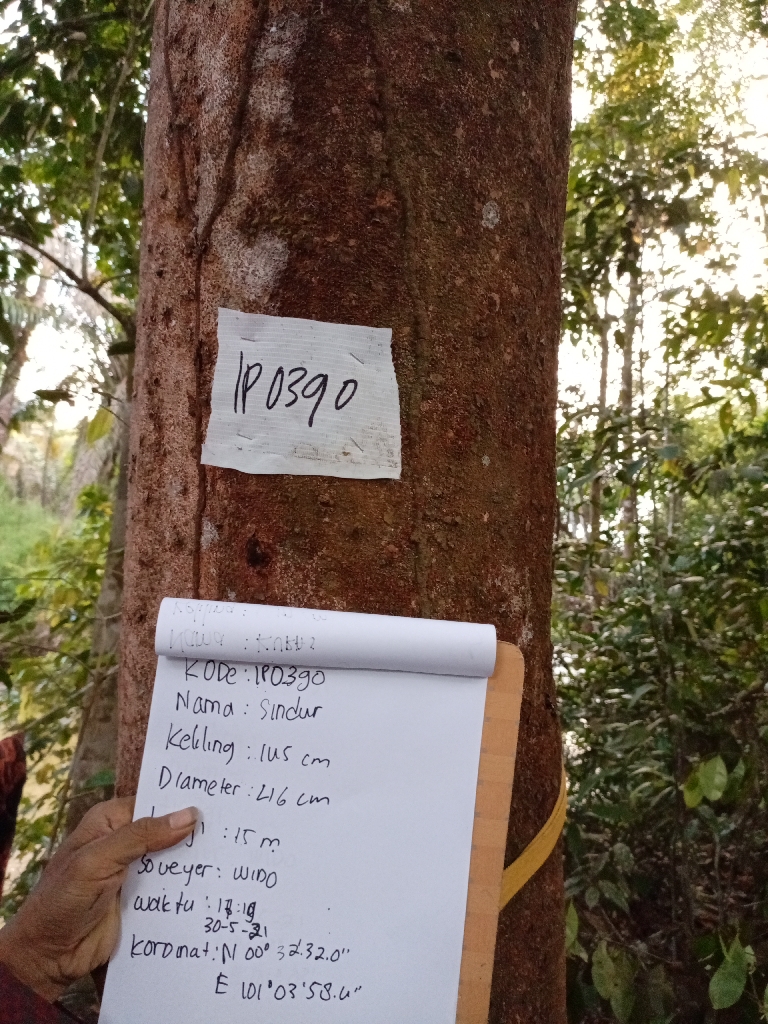 IP0390
KODe : IP0390
Nama : Sindur
Keliling : 145 cm
Diameter : 46 cm
: 15 m
Soveyer : WIDO
waktu :
30-5-21
Koronat : N 00° 32'.32.0"
E 101°03'58.4"